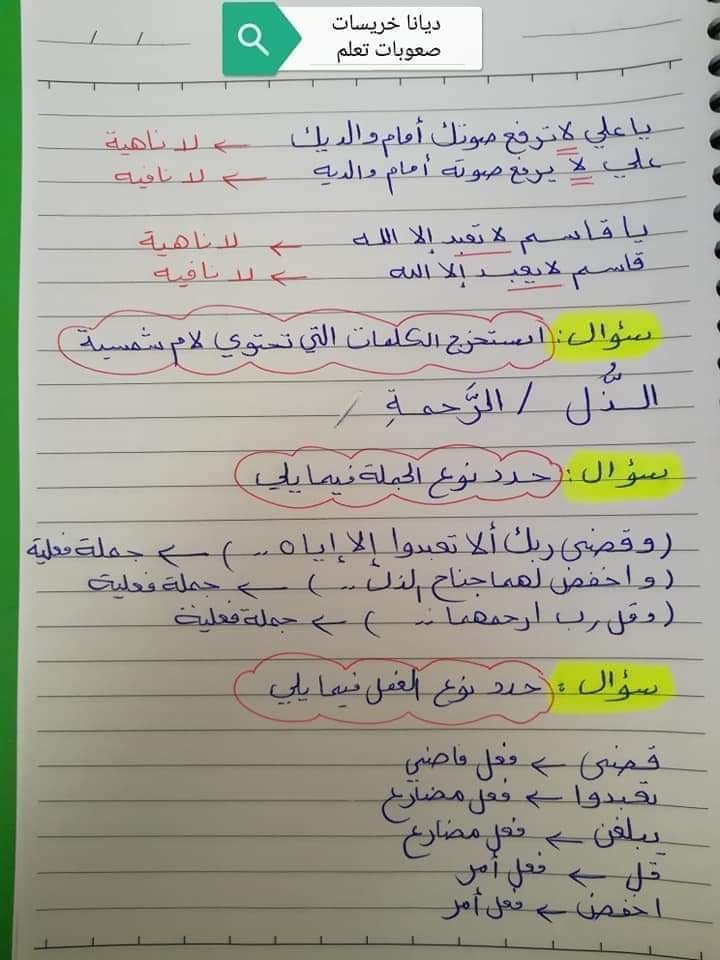 ديانا خريسات
صعوبات تعلم
يا علي لا ترفع صوتك أمام والديك ← لا ناهية
علي لا يرفع صوته أمام والديه ← لا نافيه
يا قاسم لا تعبد إلا الله ← لا ناهية
قاسم لا يعبد إلا الله ← لا نافية
سؤال: استخرج الكلمات التي تحتوي لام شمسية
الذُّل / الرَّحمةِ /
سؤال: حدد نوع الجملة فيما يلي
(وقضى ربك ألا تعبدوا إلا إياه ..) ← جملة فعلية
(واخفض لهما جناح الذل ..) ← جملة فعلية
(وقل رب ارحمهما ..) ← جملة فعلية
سؤال: حدد نوع الفعل فيما يلي
قضى ← فعل ماضي
تعبدوا ← فعل مضارع
يبلغن ← فعل مضارع
قل ← فعل أمر
اخفض ← فعل أمر